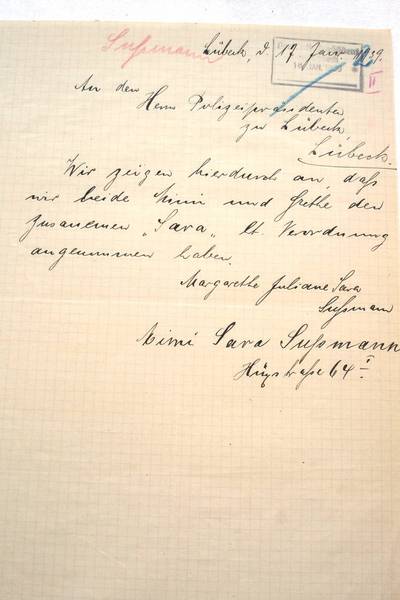 Sussmann
Lübeck, d. 17 Jan. 1939.
18. JAN. 1939
2
II
An den
Herrn Polizeipräsidenten
zu Lübeck,
Lübeck.
Wir zeigen hierdurch an, daß
wir beide Mimi und Grethe den
zusanemen „Sara„ lt. Verordnung
angenommen haben.
Margarethe Juliane Sara
Sußmann
Mimi Sara Sußmann
Hüxstraße 64 I